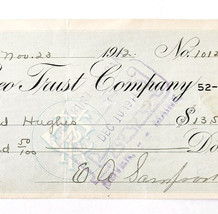 Nov. 23 1912 No. 1012
eo Trust Company 52-
d Hughes $135
nd 50/100 Do
DEC 10 191
E A Sampson